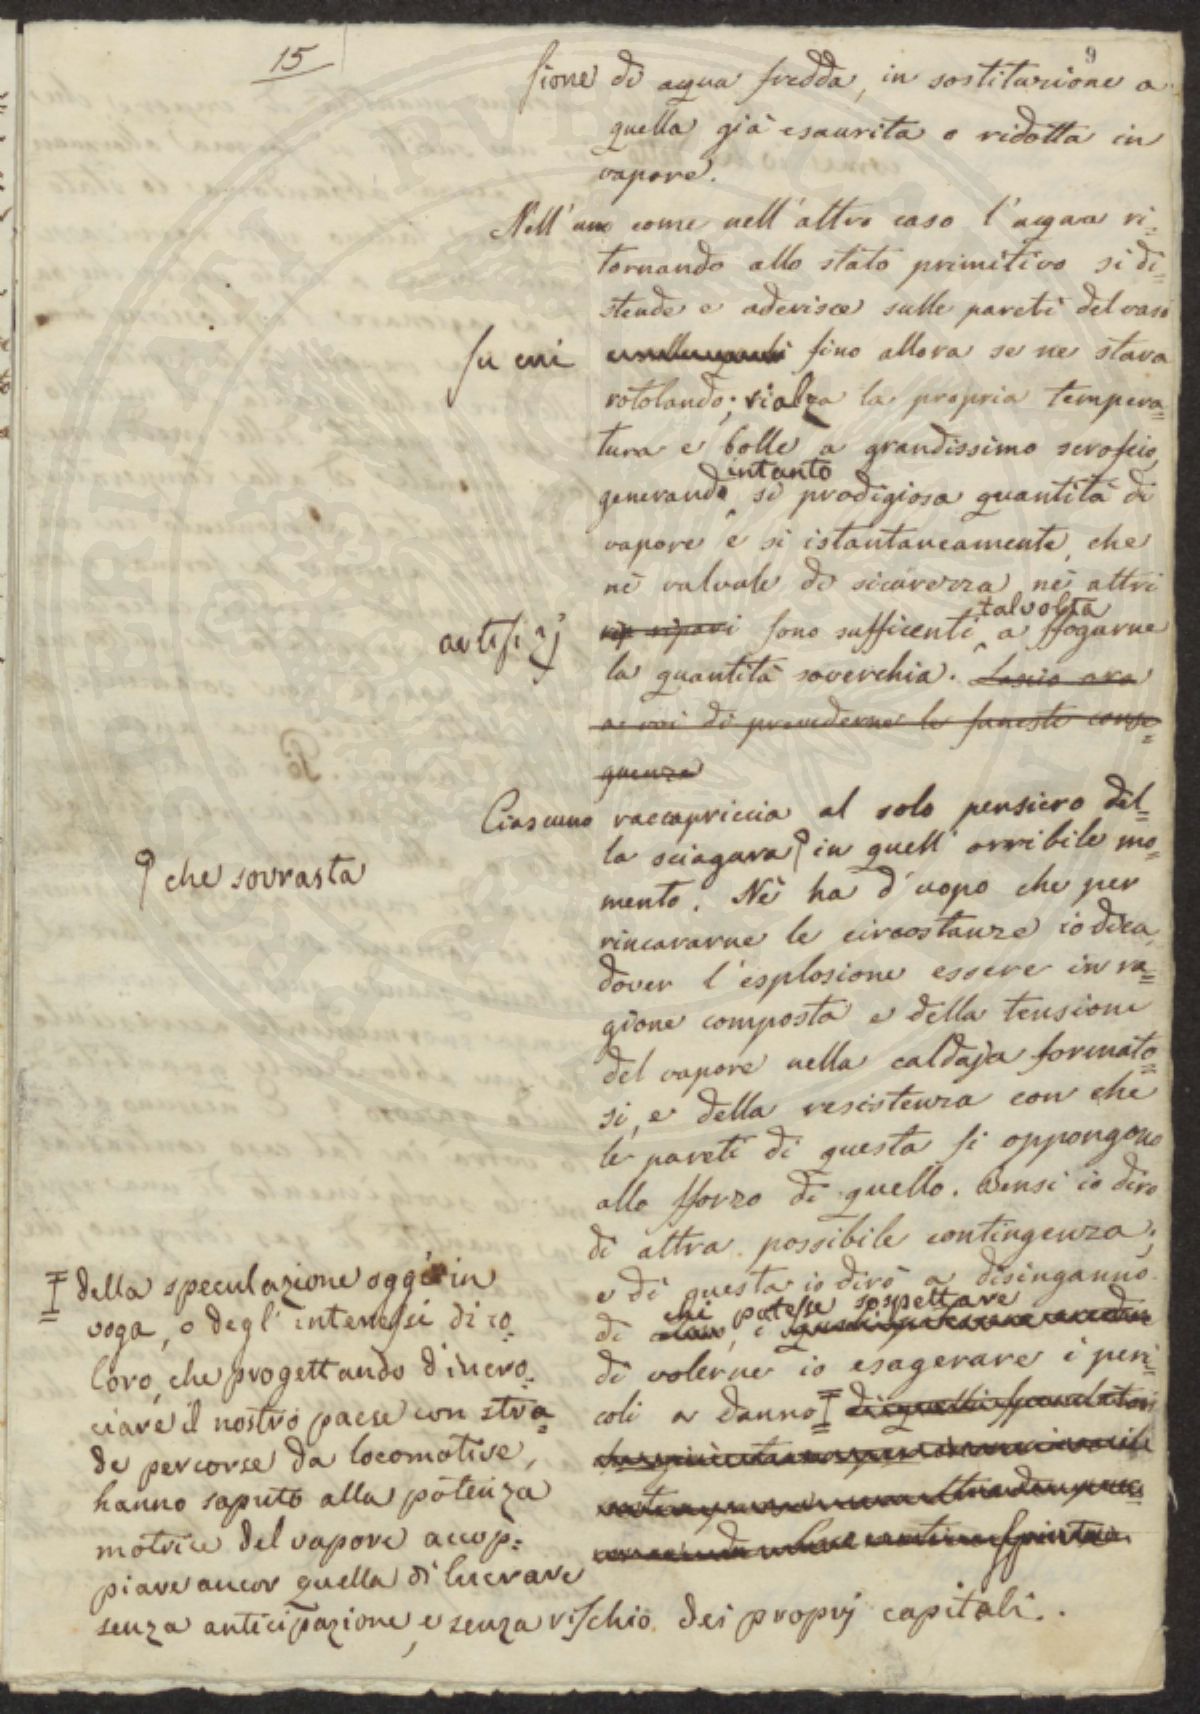 15
9
sione di acqua fredda, in sostituzione a
quella già esaurita o ridotta in
vapore.
Nell'uno come nell'altro caso l'acqua ri=
tornando allo stato primitivo si di=
stende e aderisce sulle pareti del vaso
su cui fino allora se ne stava
rotolando; rialza la propria tempera=
tura e bolle a grandissimo scroscio,
intanto
generando sì prodigiosa quantità di
vapore e sì istantaneamente, che
nè valvule di sicurezza nè altri
talvolta
artifizj rip ripari sono sufficenti a sfogarne
la quantità soverchia. Lascio ora
a voi di prevederne le funeste conse=
guenze
Ciascuno raccapriccia al solo pensiero del=
la sciagura in quell'orribile mo=
che sovrasta
mento. Nè ha d'uopo che per
rincararne le circostanze io dica,
dover l'esplosione essere in ra=
gione composta e della tensione
del vapore nella caldaja formato=
si, e della resistenza con che
le pareti di questa si oppongono
allo sforzo di quello. Bensì io dirò
di altra possibile contingenza;
e di questa io dirò a disinganno
chi potesse sospettare
di
di volerne io esagerare i peri=
coli a danno di quelli speculatori
della speculazione oggi in
voga, o degl'interessi di co=
loro, che progettando d'incro=
ciare il nostro paese con stra=
de percorse da locomotive,
hanno saputo alla potenza
motrice del vapore accop=
piare ancor quella di lucrare
senza anticipazione, e senza rischio dei proprj capitali.